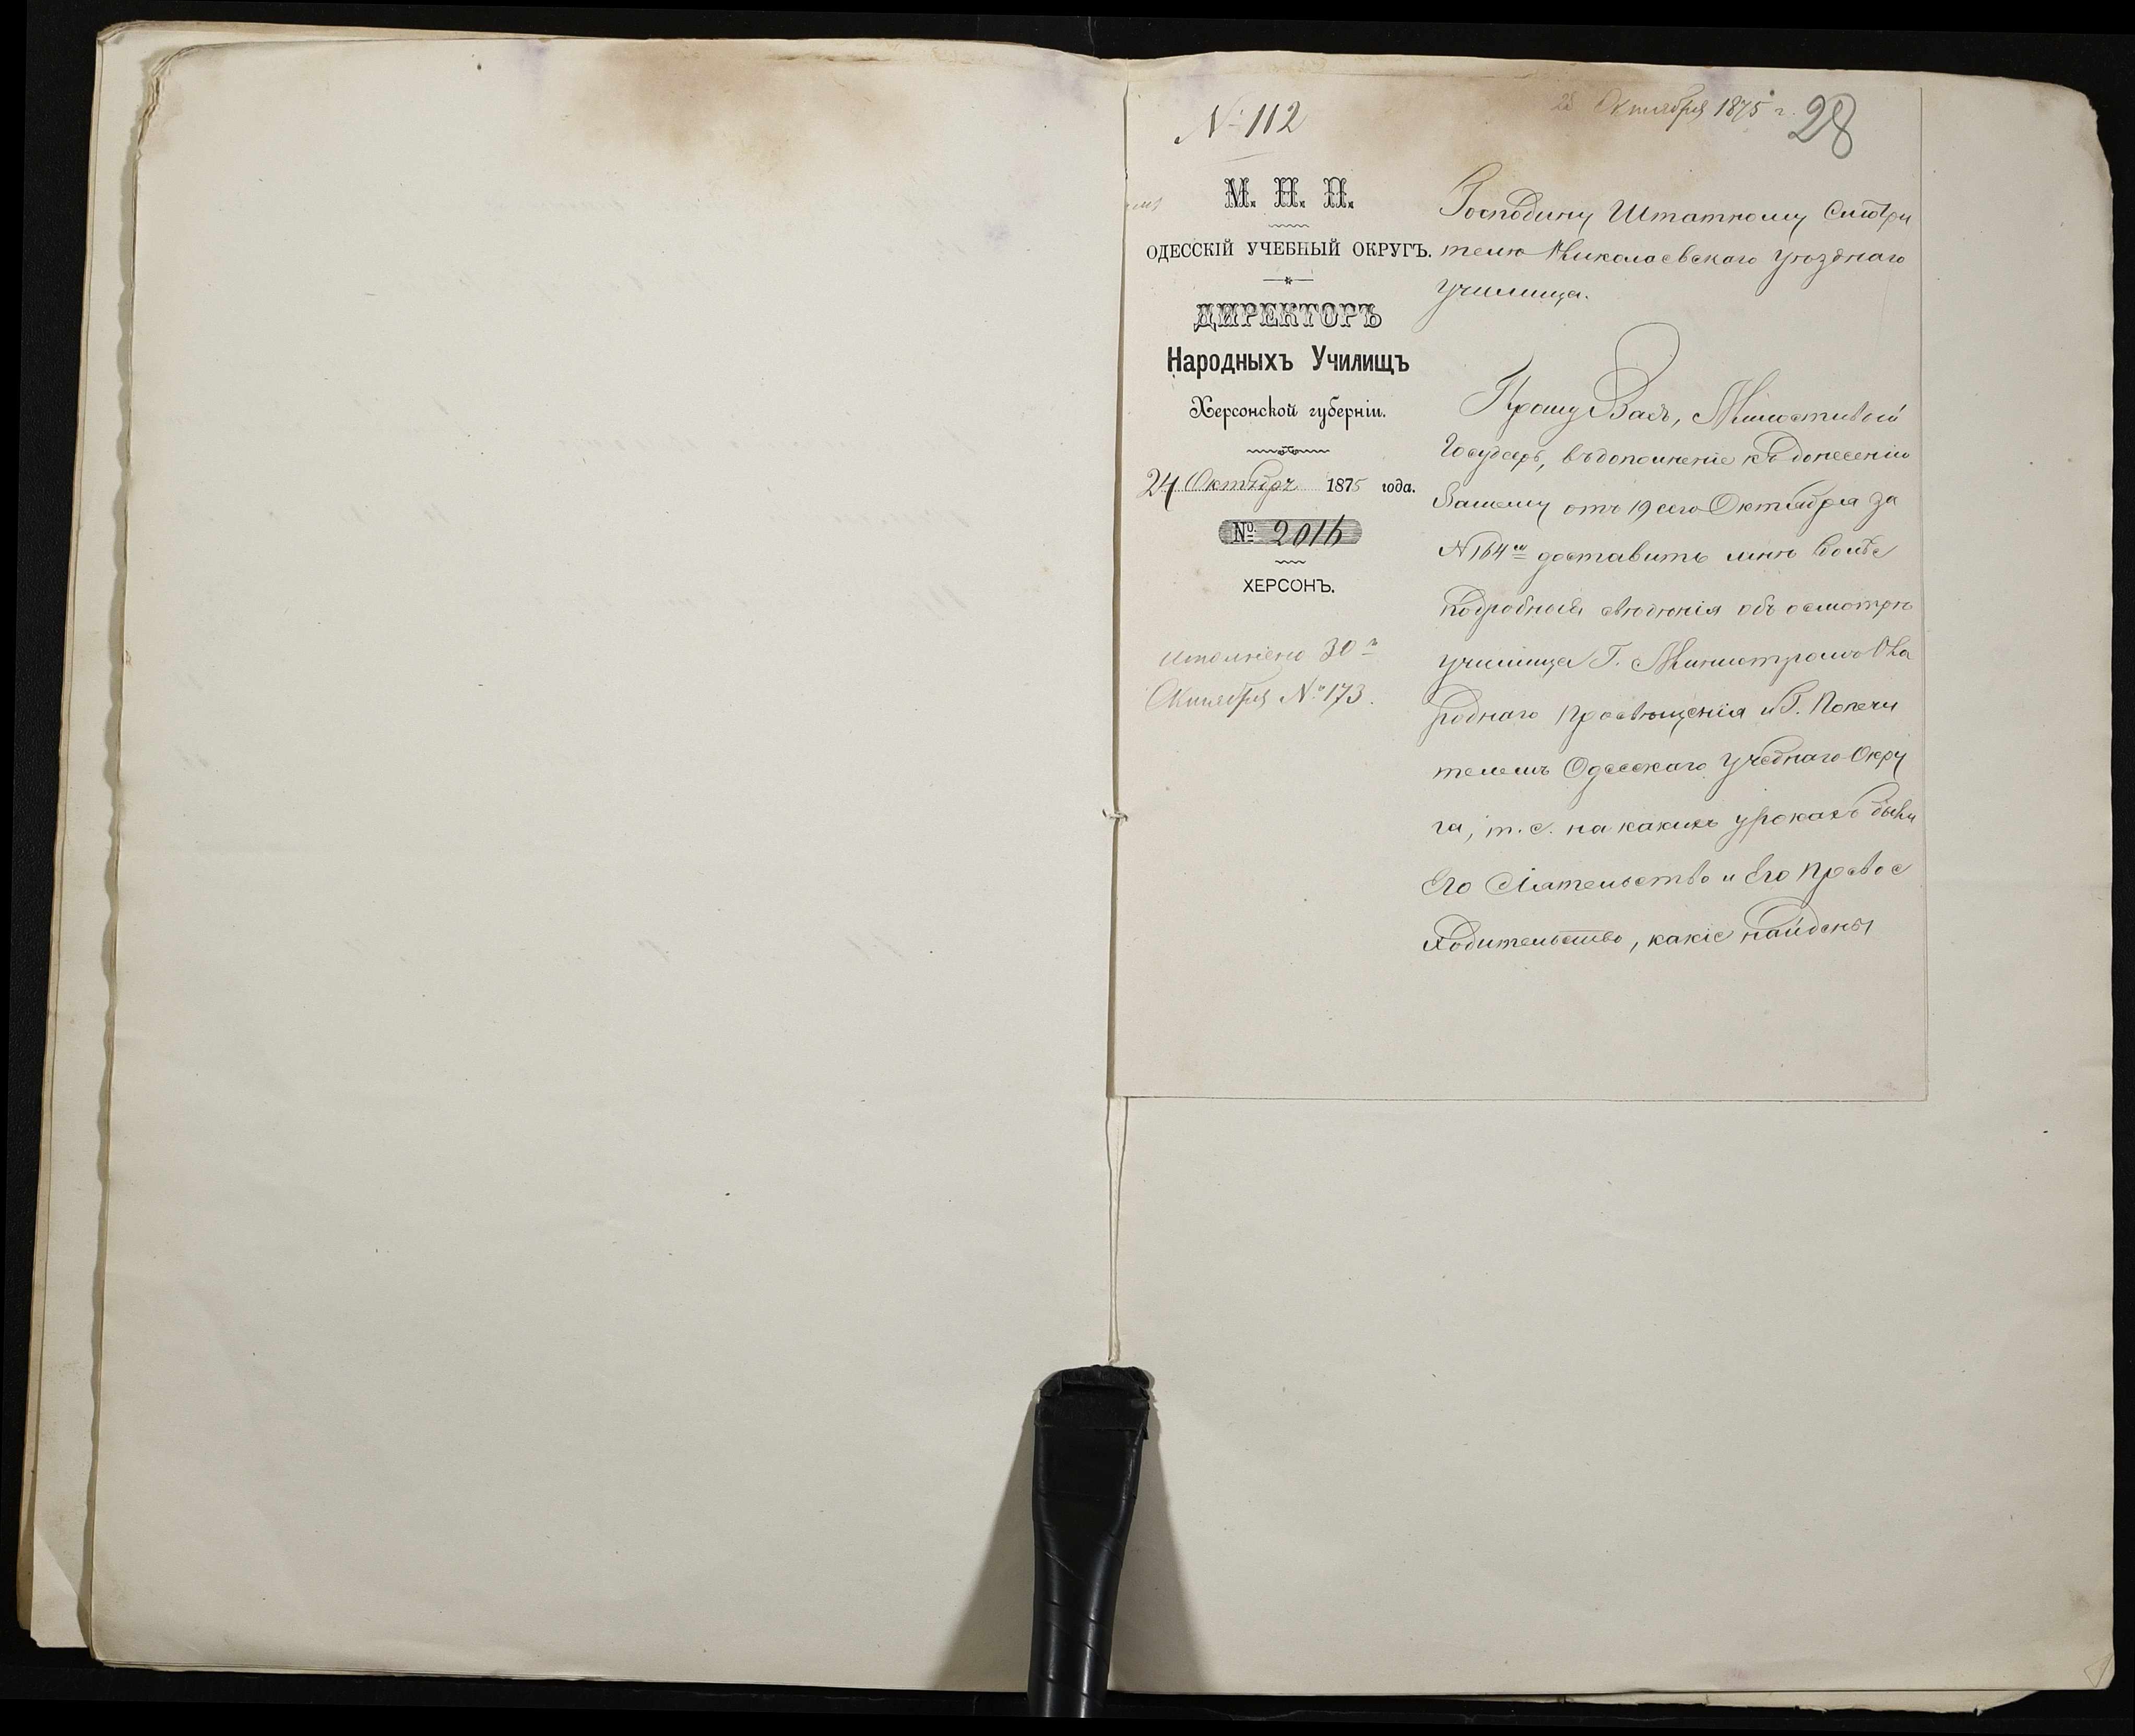 № 112
28 Октября 1875 г.
28
М. Н. П.
ОДЕССКІЙ УЧЕБНЫЙ ОКРУГЪ.
ДИРЕКТОРЪ
Народныхъ Училищъ
Херсонской губерніи.
24 Октября 1875 года.
№ 2016
ХЕРСОНЪ.
Исполнено 30
Октября № 173.
Господину Штатному Смотри
телю Николаевскаго уѣзднаго
училища.
Прошу Васъ, Милостивый
Государь, въ дополненіе къ донесенію
Вашему отъ 19 сего Октября за
№ 164 доставить мнѣ болѣе
подробныя свѣдѣнія объ осмотрѣ
училища Г. Министромъ На
роднаго Просвѣщенія и Г. Попечи
телемъ Одесскаго Учебнаго Окру
га, т. е. на какихъ урокахъ были
Его Сіятельство и Его Превос
ходительство, какіе найдены